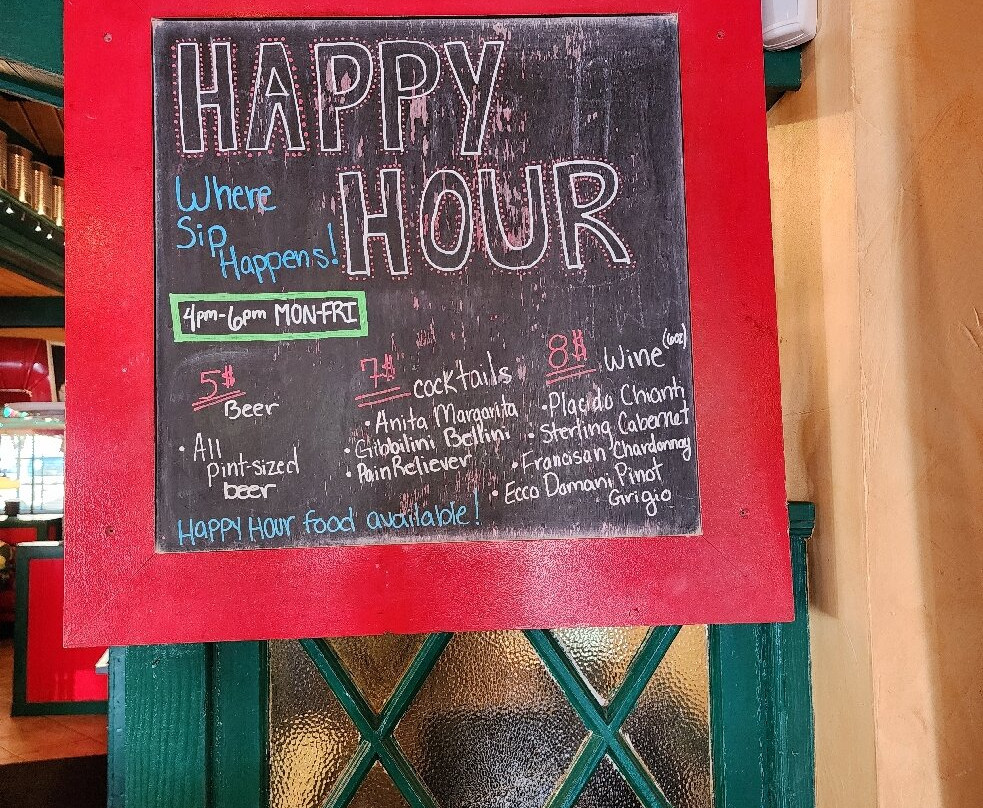 HAPPY
HOUR
Where
Sip
Happens!
4pm-6pm MON-FRI
5$
Beer
• All
pint-sized
beer
7$ cocktails
• Anita Margarita
• Gibbilini Bellini
• Pain Reliever
8$ Wine (6oz)
• Placido Chianti
• Sterling Cabernet
• Francisan Chardonnay
• Ecco Domani Pinot
Grigio
HAPPY HOUR food available!